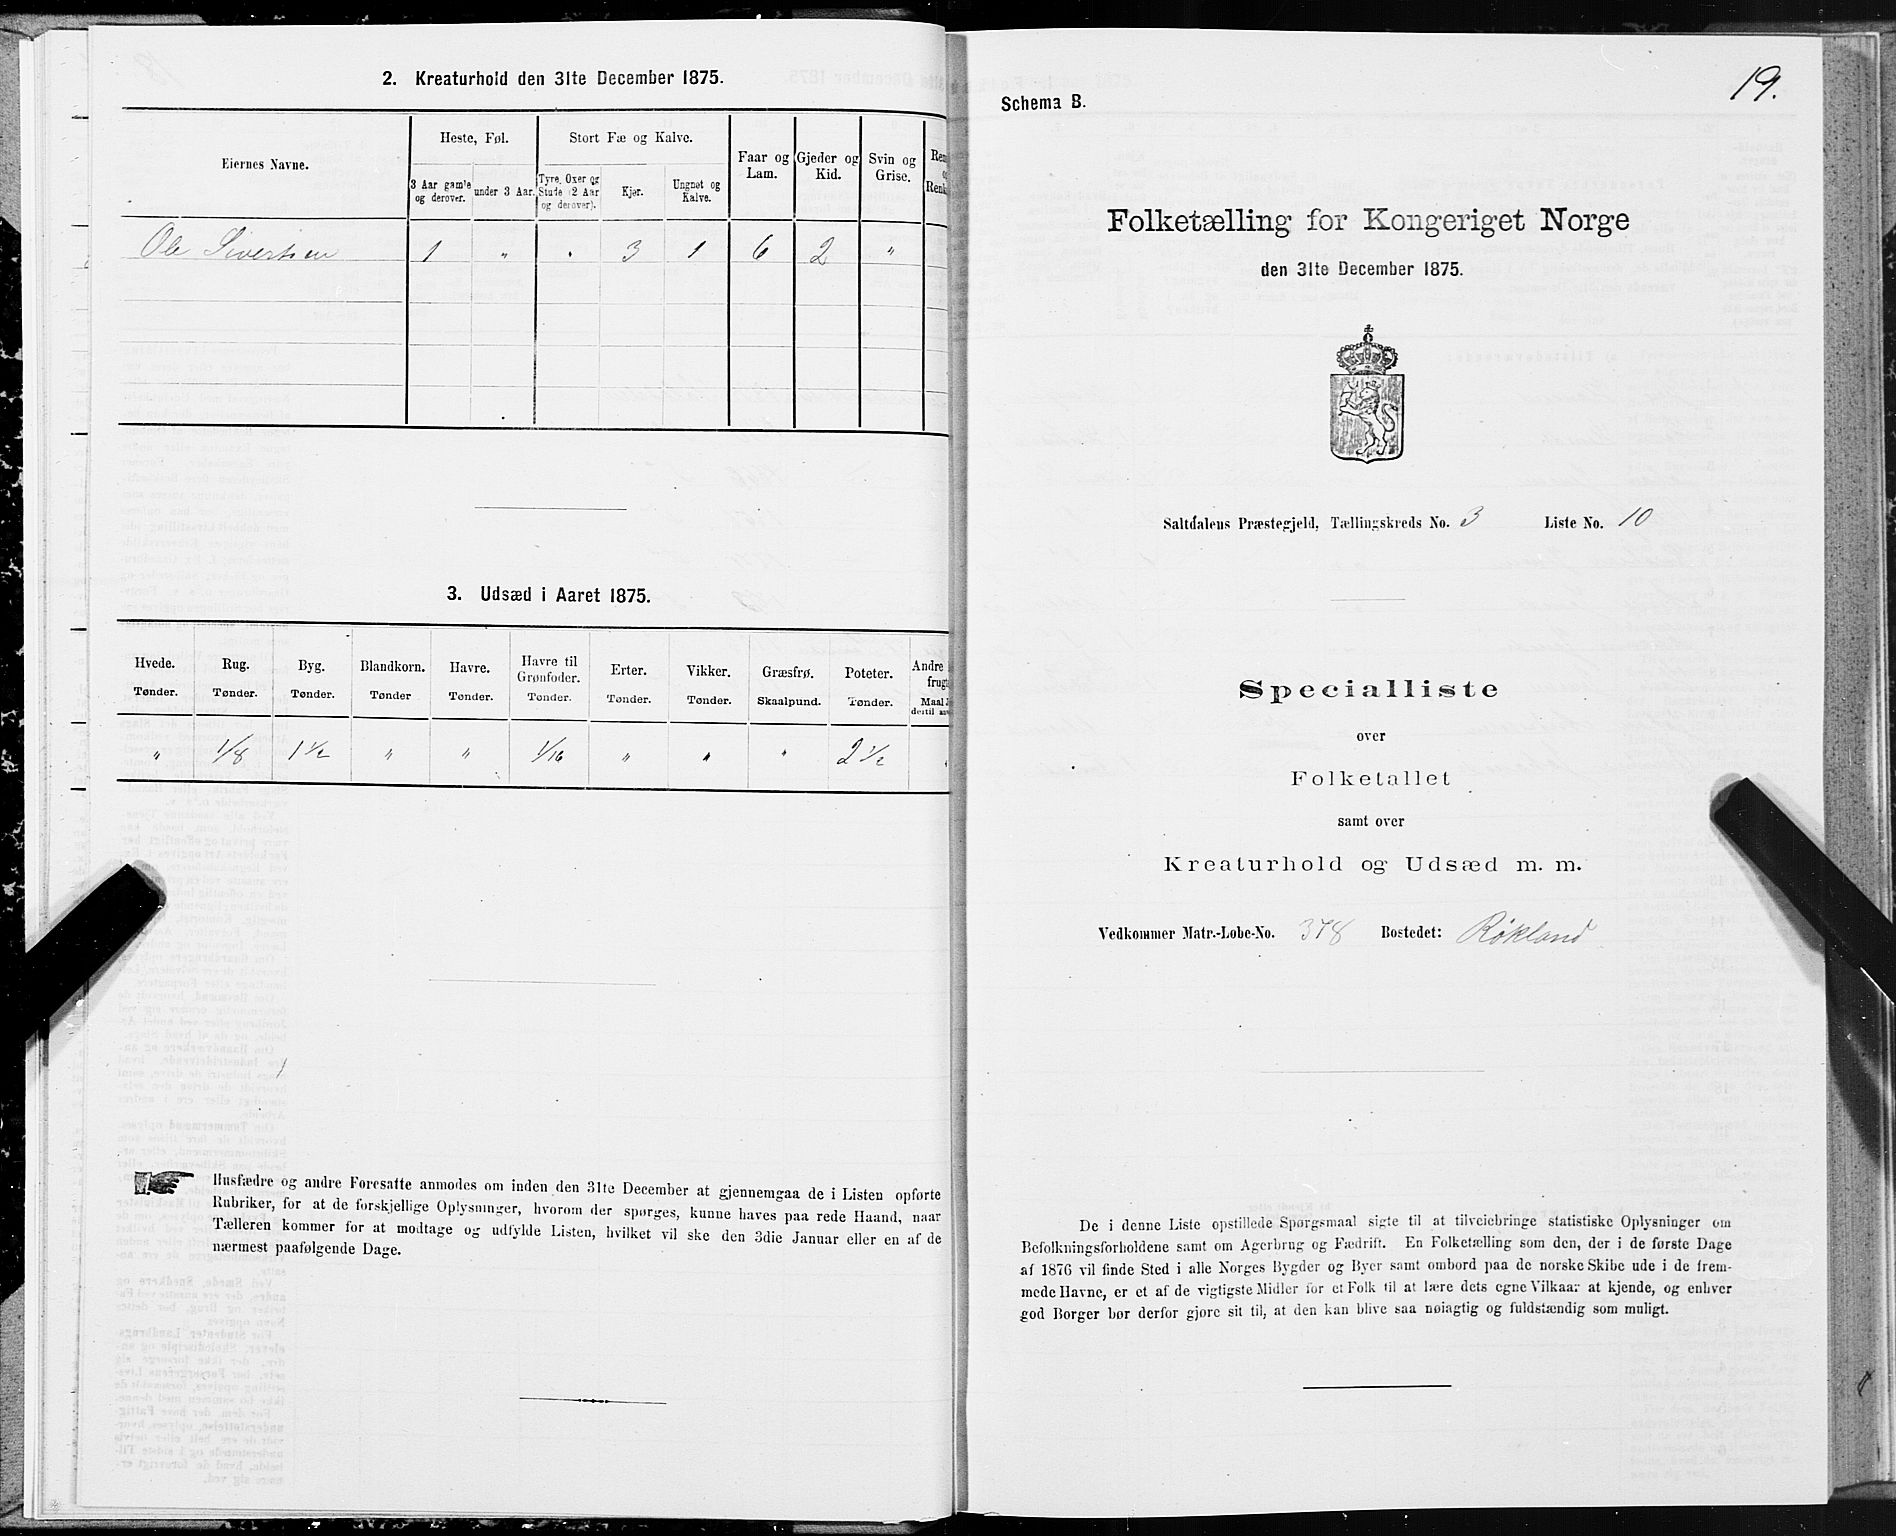 2. Kreaturhold den 31te December 1875.
Eiernes Navne.
Heste, Føl.
Stort Fæ og Kalve.
Faar og Lam.
Gjeder og Kid.
Svin og Grise.
3 Aar gamle og derover.
under 3 Aar.
Tyre, Oxer og Stude (2 Aar og derover).
Kjør.
Ungnøt og Kalve.
Ole Sivertsen 1 " " 3 1 6 2 "
3. Udsæd i Aaret 1875.
Hvede. Rug. Byg. Blandkorn. Havre. Havre til Grønfoder. Erter. Vikker. Græsfrø. Poteter. Andre
Tønder. Tønder. Tønder. Tønder Tønder. Tønder. Tønder. Tønder. Skaalpund. Tønder. Maal
" 1/8 1 1/2 " " 1/16 " " " 2 1/2 "
Husfædre og andre Foresatte anmodes om inden den 31te December at gjennemgaa de i Listen opførte
Rubriker, for at de forskjellige Oplysninger, hvorom der spørges, kunne haves paa rede Haand, naar
Tælleren kommer for at modtage og udfylde Listen, hvilket vil ske den 3die Januar eller en af de
nærmest paafølgende Dage.
19.
Schema B.
Folketælling for Kongeriget Norge
den 31te December 1875.
Saltdalens Præstegjeld, Tællingskreds No. 3 Liste No. 10
Specialliste
over
Folketallet
samt over
Kreaturhold og Udsæd m. m.
Vedkommer Matr.-Løbe-No. 378 Bostedet: Røkland
De i denne Liste opstillede Spørgsmaal sigte til at tilveiebringe statistiske Oplysninger om
Befolkningsforholdene samt om Agerbrug og Fædrift. En Folketælling som den, der i de første Dage
af 1876 vil finde Sted i alle Norges Bygder og Byer samt ombord paa de norske Skibe ude i de frem-
mede Havne, er et af de vigtigste Midler for et Folk til at lære dets egne Vilkaar at kjende, og enhver
god Borger bør derfor gjøre sit til, at den kan blive saa nøiagtig og fuldstændig som muligt.